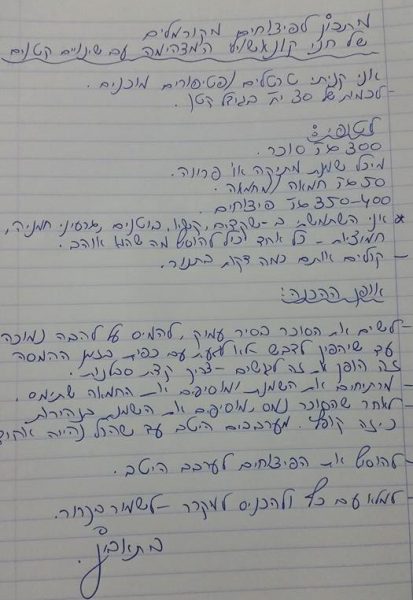 מתכון לפיצוחים מקורמלים
של חני קונאשוילי המדהימה עם שינויים קטנים
אני קניתי טרטלים ופטיפורים מוכנים.
לכמות של 30 יח' בגודל קטן.
לטופי:
300 גר' סוכר.
מיכל שמנת מתוקה או פרווה.
50 גר' חמאה / מחמאה.
350-400 גר' פיצוחים.
* אני השתמשתי ב- שקדים, קשיו, בוטנים, גרעיני חמניה,
חמוציות - כל אחד יכול להוסיף מה שהוא אוהב.
- קולים אותם כמה דקות בתנור.
אופן ההכנה:
- לשים את הסוכר בסיר עמיק, להמיס על להבה נמוכה
עד שיהפוך לדבש לא לגעת עם כפית בזמן ההמסה
זה הופך את זה לגושים - צריך קצת סבלנות.
- מרתיחים את השמנת ומוסיפים את החמאה שתימס.
- לאחר שהסוכר נמס, מוסיפים את השמנת בזהירות
כי זה קופץ. מערבבים היטב עד שהכל נהיה אחיד
- להוסיף את הפיצוחים לערבב היטב.
- למלא עם כף ולהכניס למקרר - לשמור בקרור.
בתאבון.